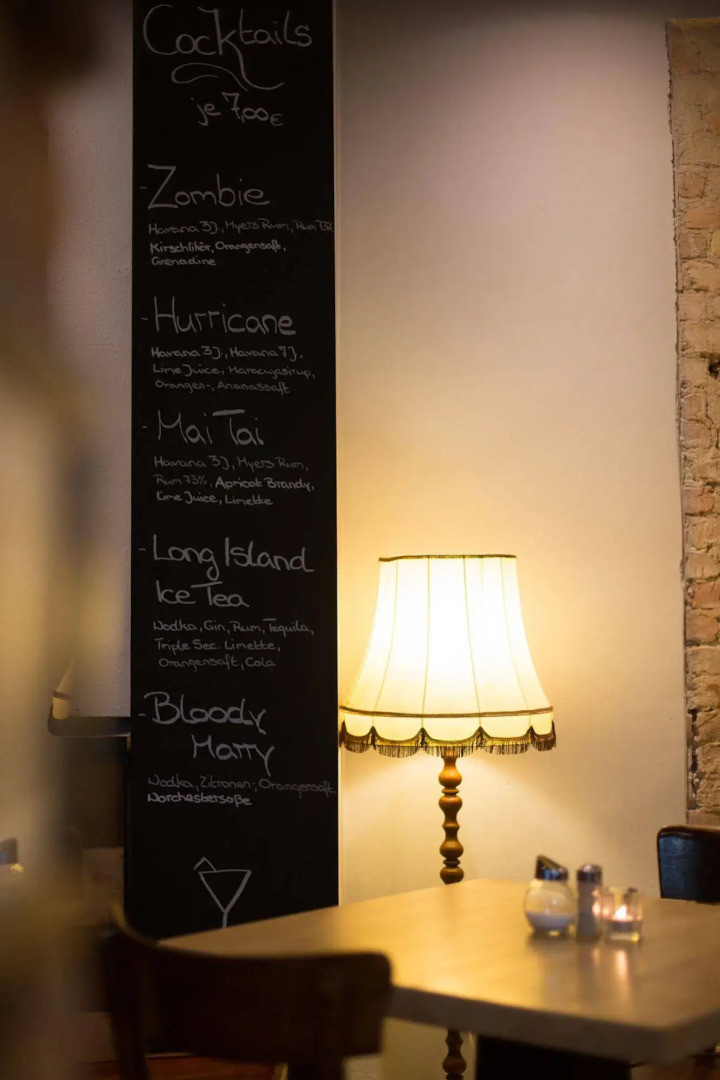 Cocktails
je 7,00€
- Zombie
Havana 3J., Myers Rum, Rum 73%
Kirschlikör, Orangensaft,
Grenadine
- Hurricane
Havana 3J., Havana 7J.,
Lime Juice, Maracujasirup,
Orangen-, Ananassaft
- Mai Tai
Havana 3J, Myers Rum,
Rum 73%, Apricot Brandy,
Lime Juice, Limette
- Long Island
Ice Tea
Wodka, Gin, Rum, Tequila,
Triple Sec. Limette,
Orangensaft, Cola
- Bloody
Marry
Wodka, Zitronen-, Orangensaft
Worchestersoße